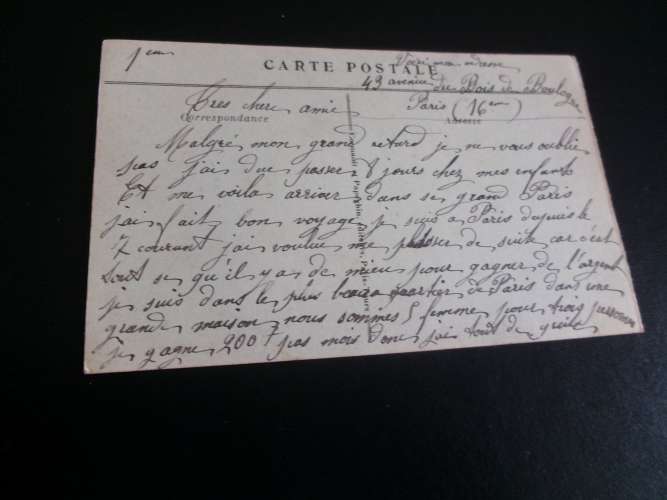 1er
CARTE POSTALE
Voici mon adresse
43 avenue
du Bois de Boulogne
Paris (16em)
Tres chere amie
Correspondance
Adresse
Malgré mon grand retard je ne vous oublie
pas j'ai due passer 8 jours chez mes enfants
Et me voila arriver dans se grand Paris
j'ai fait bon voyage je suis a Paris depuis le
7 courant j'ai voulue me placer de suite car c'est
tout se qu'il y a de mieux pour gagner de l'argent
je suis dans le plus beau quartier de Paris dans une
grande maison nous sommes 5 femme pour trois personnes
je gagne 200 f pas mois donc j'ai tout de suite